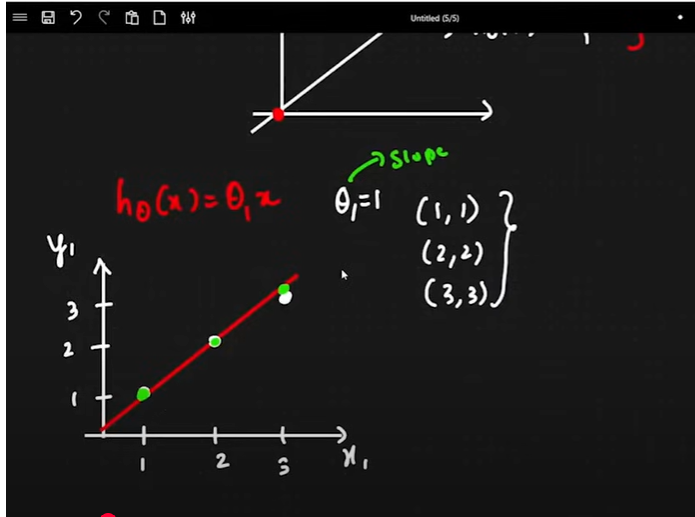 Untitled (5/5)
slope
hθ(x)=θ₁x
θ₁=1
(1,1)
(2,2)
(3,3)
y₁
3
2
1
1
2
3
x₁